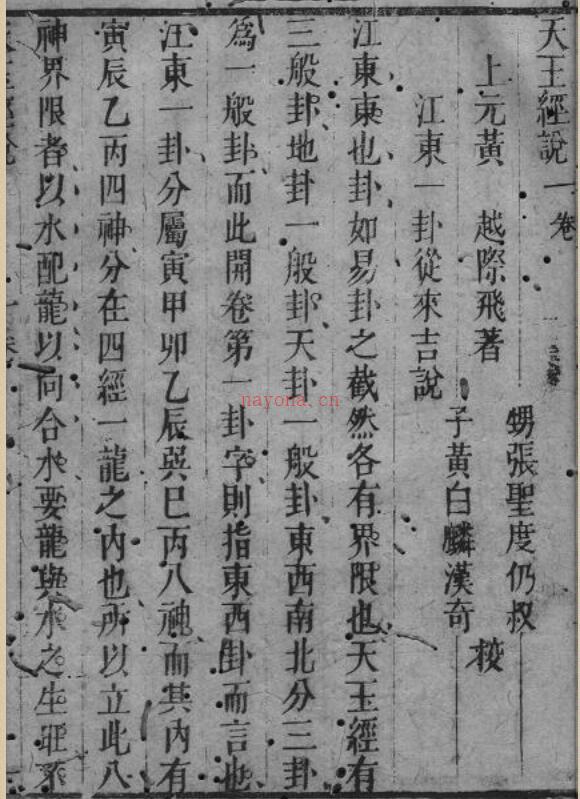 天王經說一卷
甥張聖度仍叔
上元黃 越際飛著
子黃白麟漢奇 校
江東一卦從來吉說
江東東也卦如易卦之截然各有界限也天玉經有
三般卦地卦一般卦天卦一般卦東西南北分三卦
爲一般卦而此開卷第一卦字則指東西卦而言也
江東一卦分屬寅甲卯乙辰巽巳丙八神而其內有
寅辰乙丙四神分在四經一龍之內也所以立此八
神界限者以水配龍以向合水要龍與水之生旺
nayona.cn